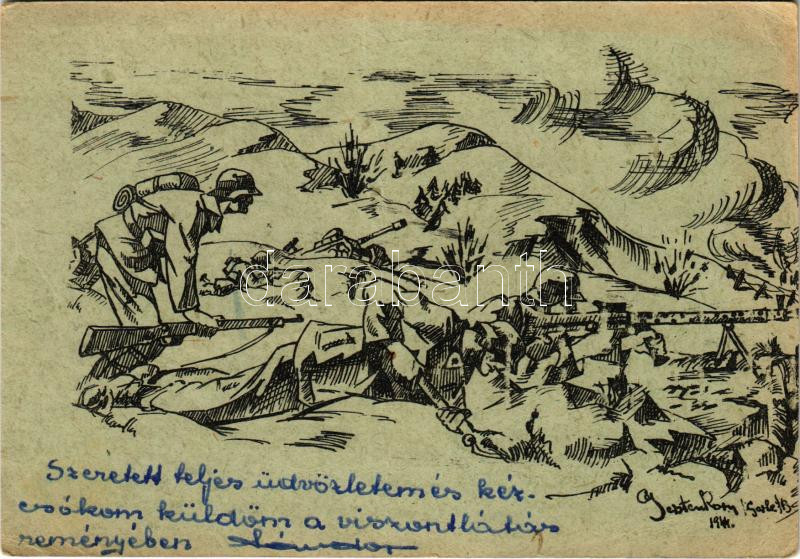 darabanth
Szeretett teljes üdvözletem és kéz-
csókom küldöm a viszontlátás
reményében Sándor